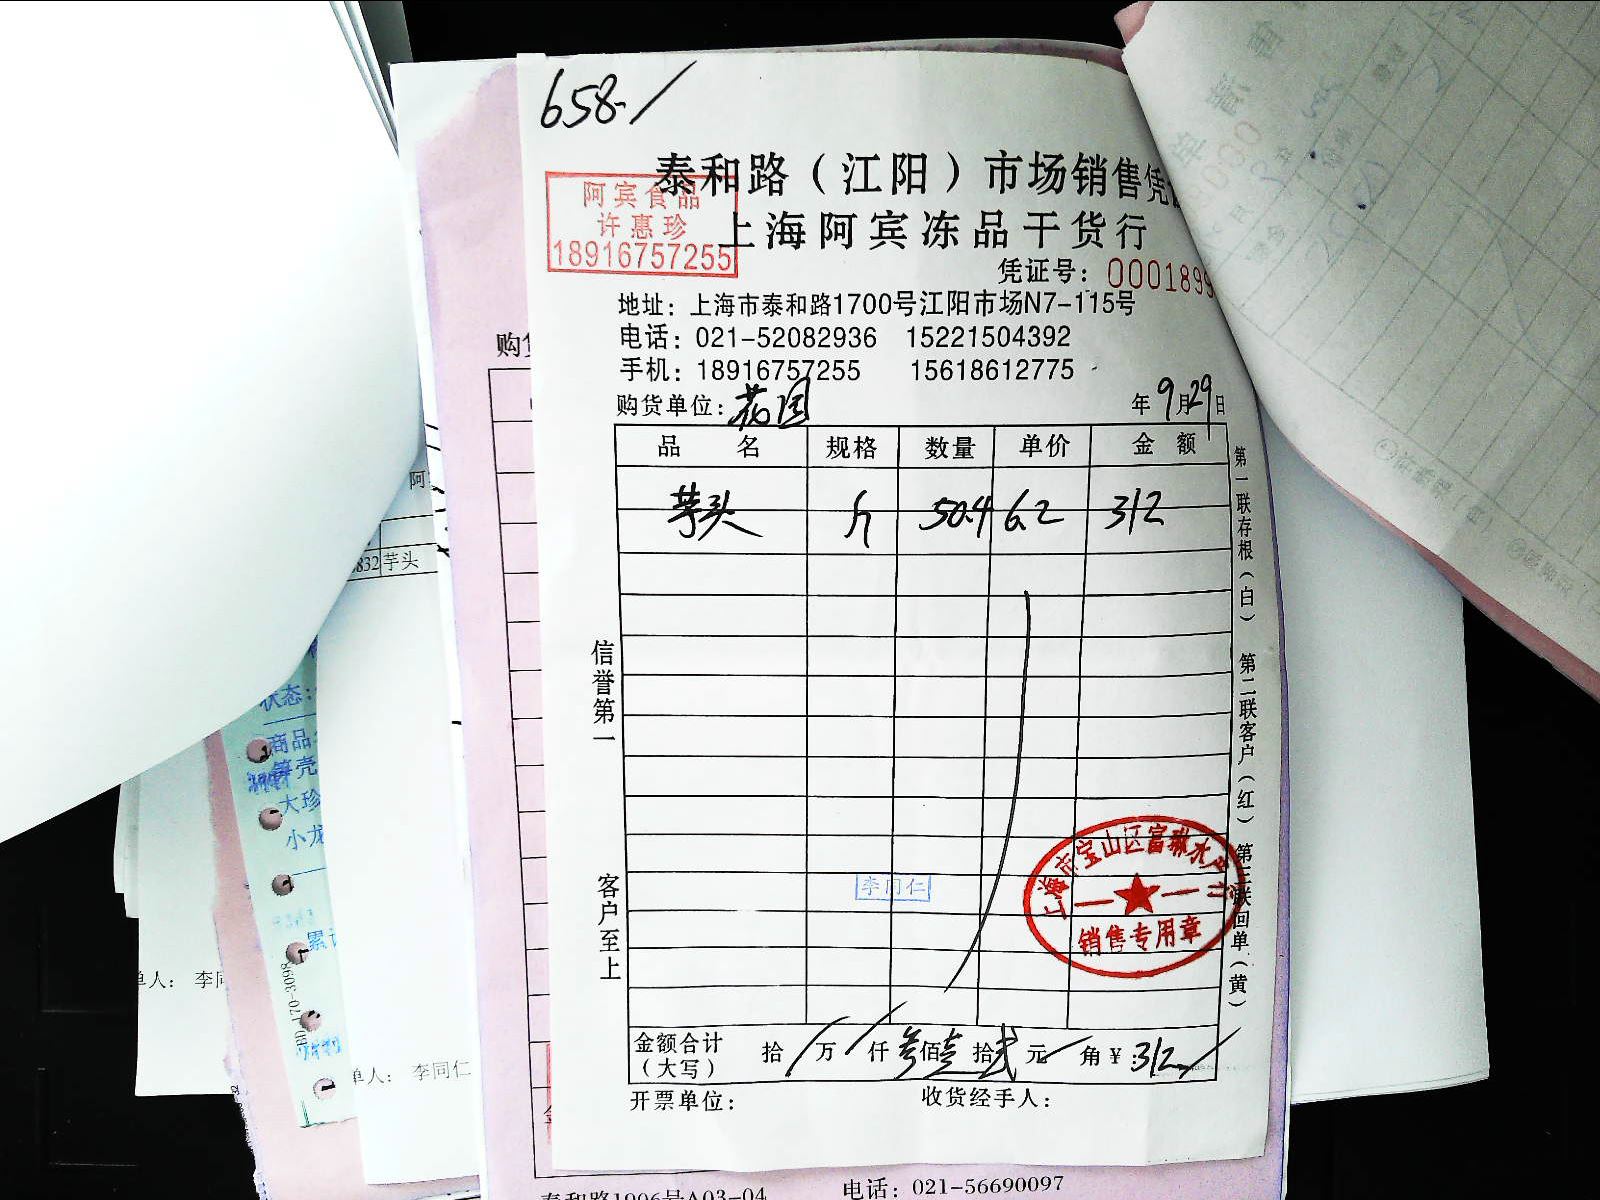 658-/
泰和路（江阳）市场销售凭
阿宾食品
许惠珍
18916757255
上海阿宾冻品干货行
凭证号：0001899
地址：上海市泰和路1700号江阳市场N7-115号
电话：021-52082936 15221504392
手机：18916757255 15618612775
购货单位：花园 年9月29日
品名 规格 数量 单价 金额
芋头 斤 50.4 6.2 312
信誉第一
客户至上
第一联存根（白） 第二联客户（红） 第三联回单（黄）
李同仁
上海市宝山区富琳水产行
销售专用章
金额合计（大写） 拾 万 仟 叁佰壹拾贰元 角 ￥：312
开票单位： 收货经手人：
购
阿
832 芋头
状态：
商品
笋壳
大珍
小龙
累计
单人： 李同
单人： 李同仁
泰和路1996号A03-04 电话：021-56690097